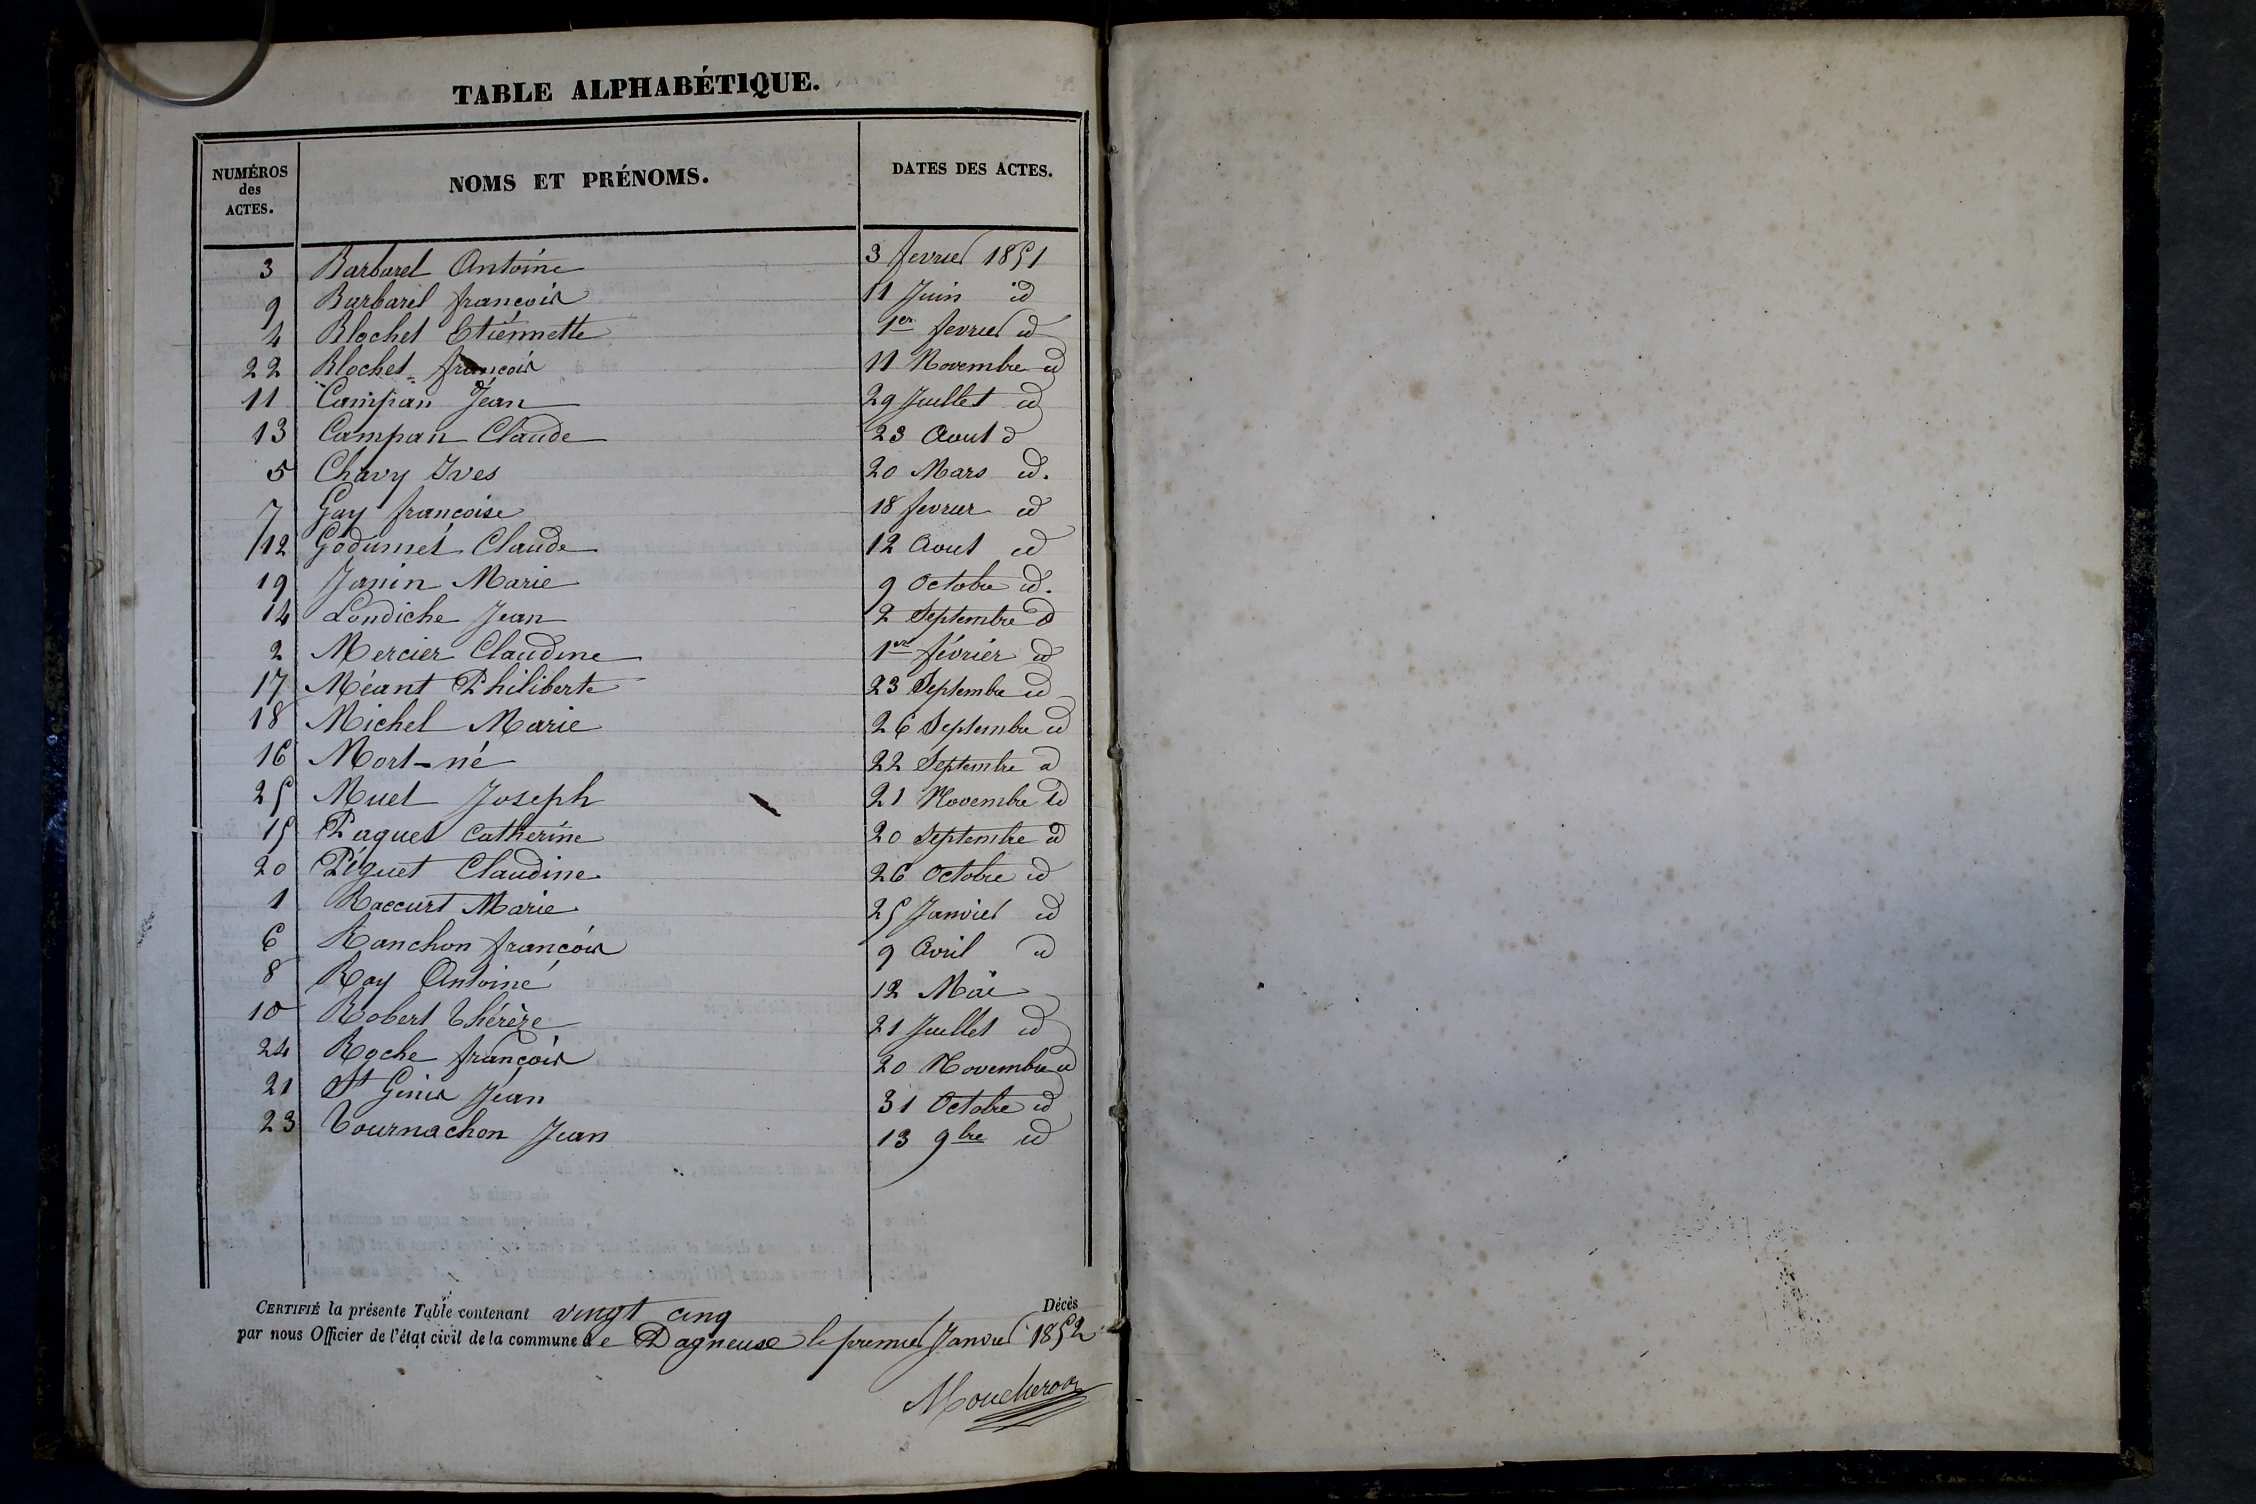 TABLE ALPHABÉTIQUE.
NUMÉROS des ACTES. NOMS ET PRÉNOMS. DATES DES ACTES.
3 Barbarel Antoine 3 fevrier 1851
9 Barbarel françois 11 Juin id
4 Blochet Etiennette 1er fevrier id
22 Blochet françois 11 Novembre id
11 Campan Jean 29 Juillet id
13 Campan Claude 23 Aout d
5 Chavy Ives 20 Mars id.
7 Gay francoise 18 fevrier id
12 Godumet Claude 12 Aout id
19 Janin Marie 9 Octobre id.
14 Londiche Jean 2 Septembre d
2 Mercier Claudine 1er février id
17 Méant Philiberte 23 Septembre id
18 Michel Marie 26 Septembre id
16 Mort-né 22 Septembre d
25 Muet Joseph 21 Novembre id
15 Paquet Catherine 20 Septembre id
20 Péguet Claudine 26 Octobre id
1 Raccurt Marie 25 Janvier id
6 Ranchon françois 9 Avril id
8 Ray Antoine 12 Mai
10 Robert Thérèze 21 Juillet id
24 Roche françois 20 Novembre id
21 St Genis Jean 31 Octobre id
23 Tournachon Jean 13 9bre id
CERTIFIÉ la présente Table contenant vingt cinq Décès
par nous Officier de l'état civil de la commune de Dagneuse le premier Janvier 1852
Moucheron